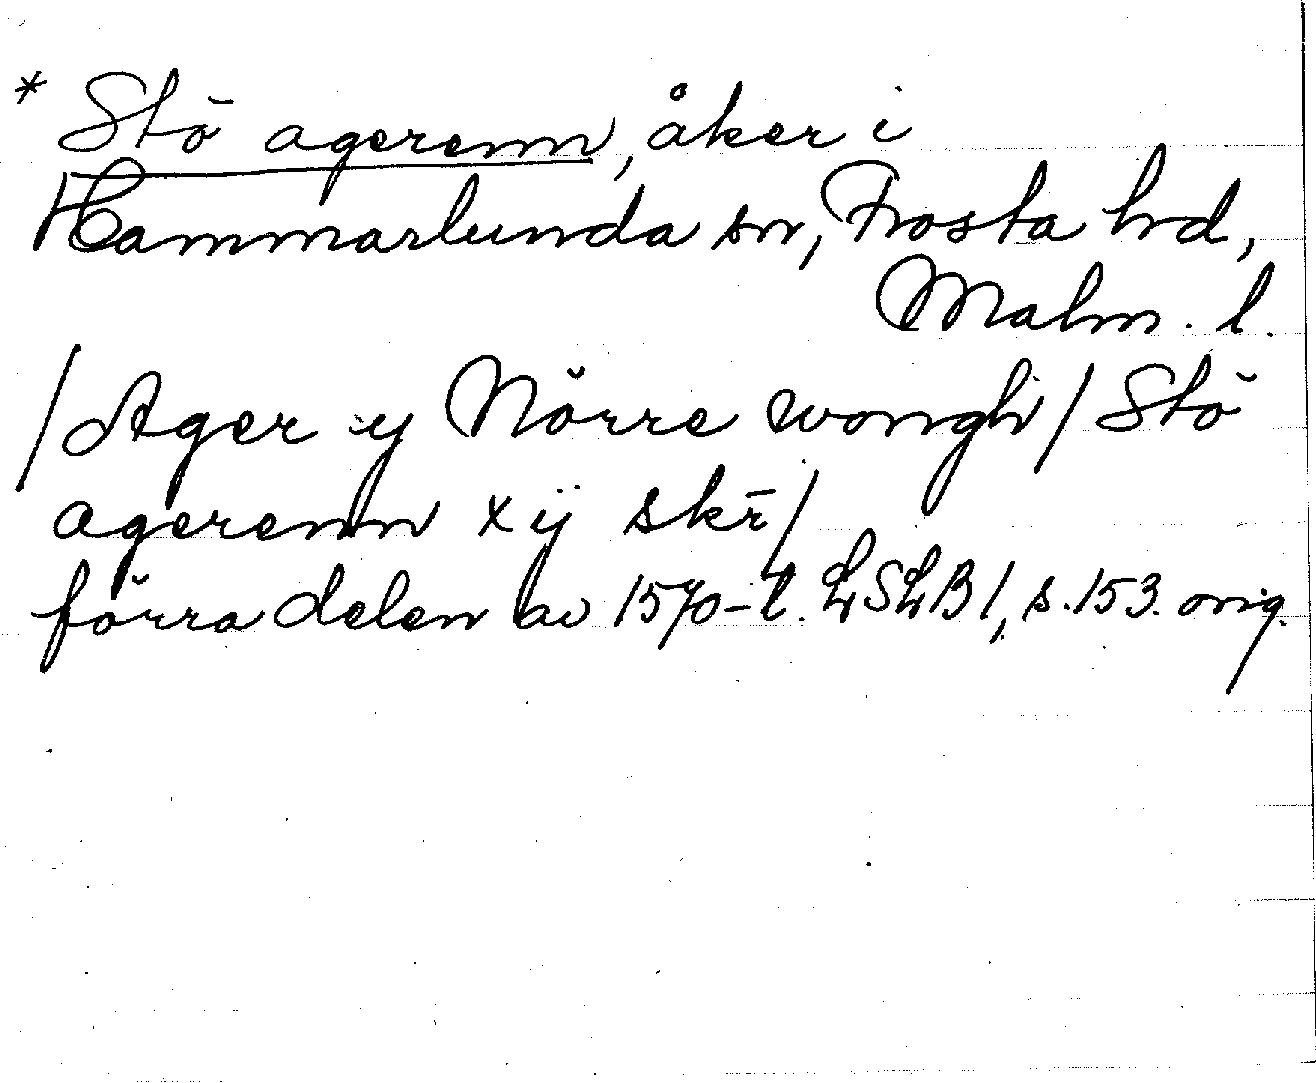 * Stö agerenn, åker i
Hammarlunda sn, Frosta hd,
Malm. l.
/Ager y Nörre wongh/ Stö
agerenn x ij skr̄/
förra delen av 1570-t. LSLB 1, s. 153. orig.